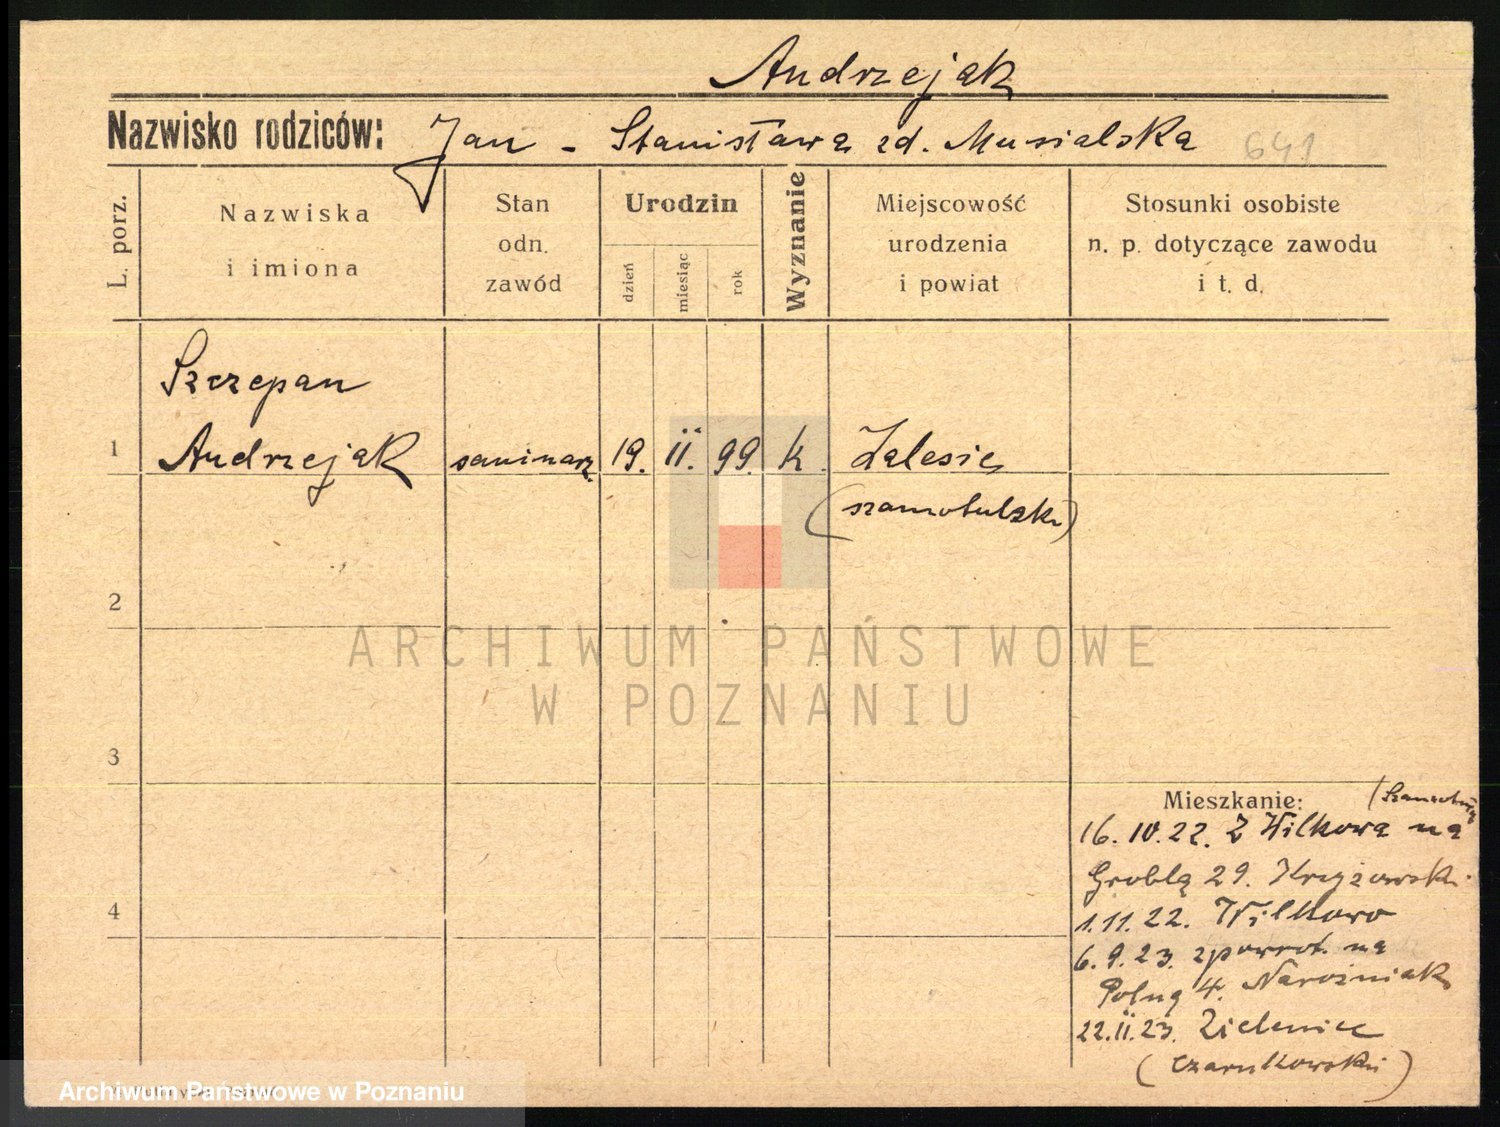 Andrzejak
Nazwisko rodziców: Jan - Stanisława zd. Musialska 641
L. porz.
Nazwiska
i imiona
Stan
odn.
zawód
Urodzin
dzień
miesiąc
rok
Wyznanie
Miejscowość
urodzenia
i powiat
Stosunki osobiste
n. p. dotyczące zawodu
i t. d.
Szczepan
1 Andrzejak seminarz. 19. II. 99. k. Zalesie
(szamotulski)
2
ARCHIWUM PAŃSTWOWE
W POZNANIU
3
Mieszkanie:
16. 10. 22. Z Wilkowa na
Groblą 29.
4
1. 11. 22. Wilkowo
6. 9. 23. zpowrot. na
Polną 4. Narożniak
22. II. 23. Zieleniec
(czarnkowski)
Archiwum Państwowe w Poznaniu